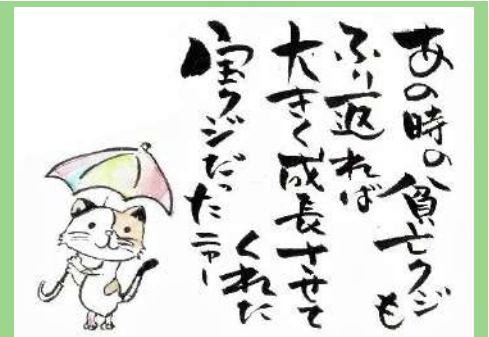 あの時の貧亡クジも
ふり返れば
大きく成長させてくれた
宝クジだったニャー